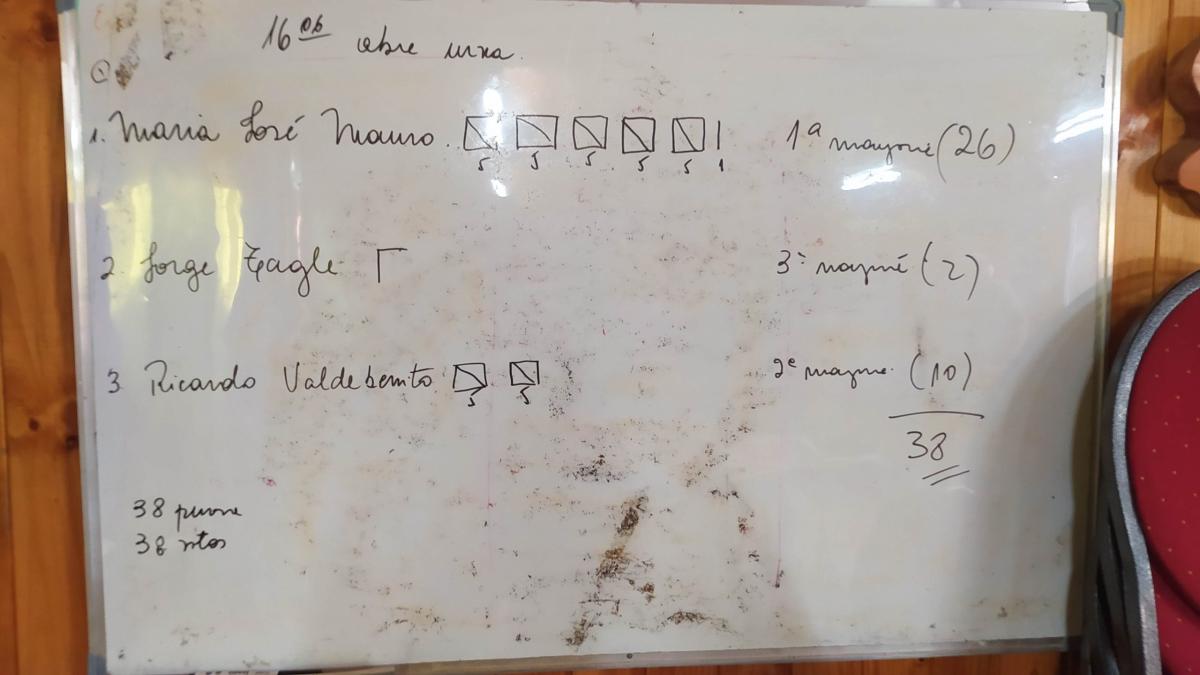 16 06 abre urna.
1. Maria José Mauro. 1ª mayoria (26)
5 5 5 5 5 1
2. Jorge Tagle 3ª mayoria (2)
3 Ricardo Valdebenito 2ª mayoria (10)
5 5
38
38 persona
38 votos